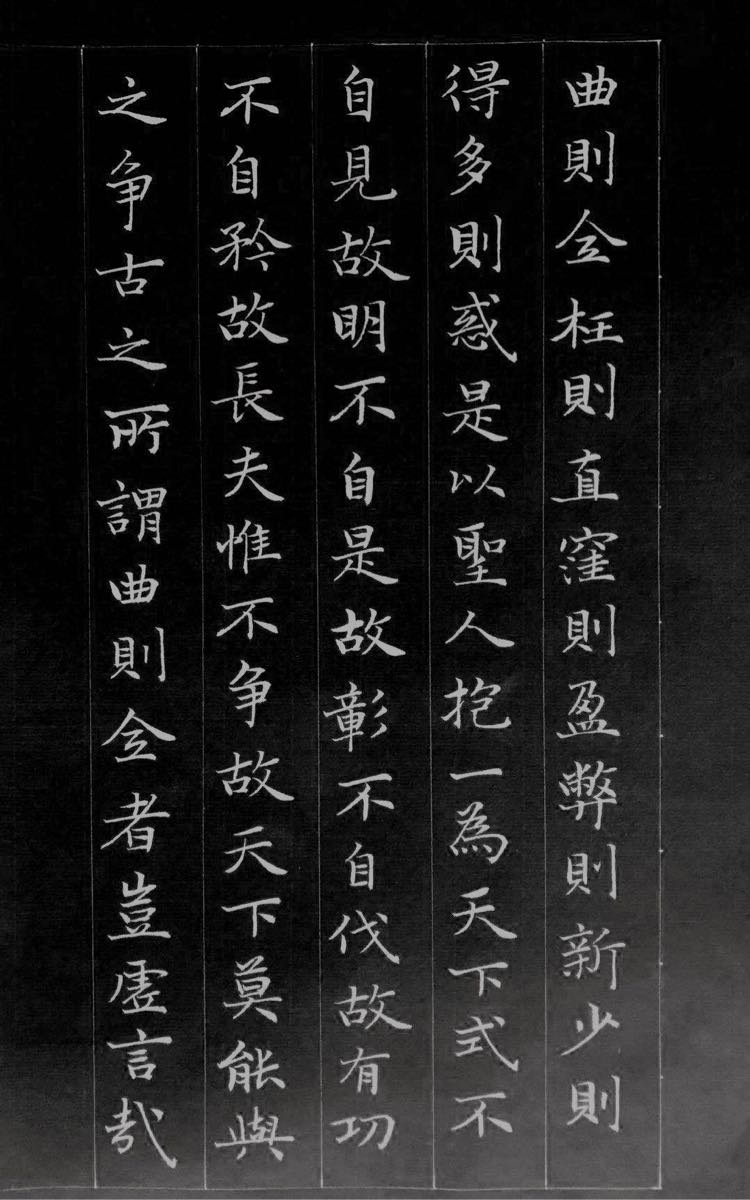 曲則全枉則直窪則盈弊則新少則
得多則惑是以聖人抱一為天下式不
自見故明不自是故彰不自伐故有功
不自矜故長夫惟不争故天下莫能與
之争古之所謂曲則全者豈虛言哉